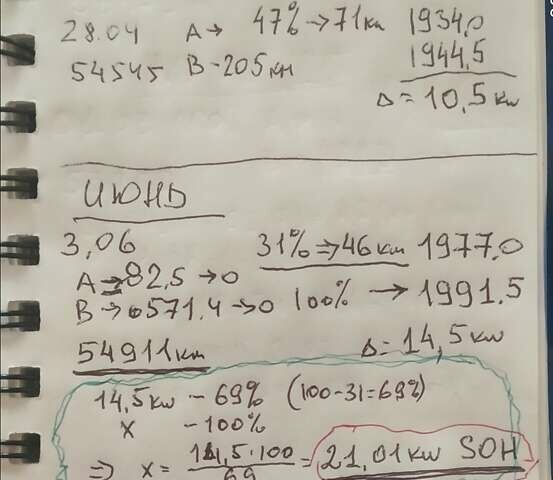 28.04 A→ 47% → 71км 1934,0
54545 B - 205км 1944,5
Δ = 10,5кw
ИЮНЬ
3,06 31% ⇒ 46км 1977.0
A → 82,5 → 0
B → 571.4 → 0 100% → 1991.5
54911км Δ = 14,5кw
14,5кw - 69% (100-31=69%)
x - 100%
⇒ x = 14,5·100 / 69 = 21,01кw SOH